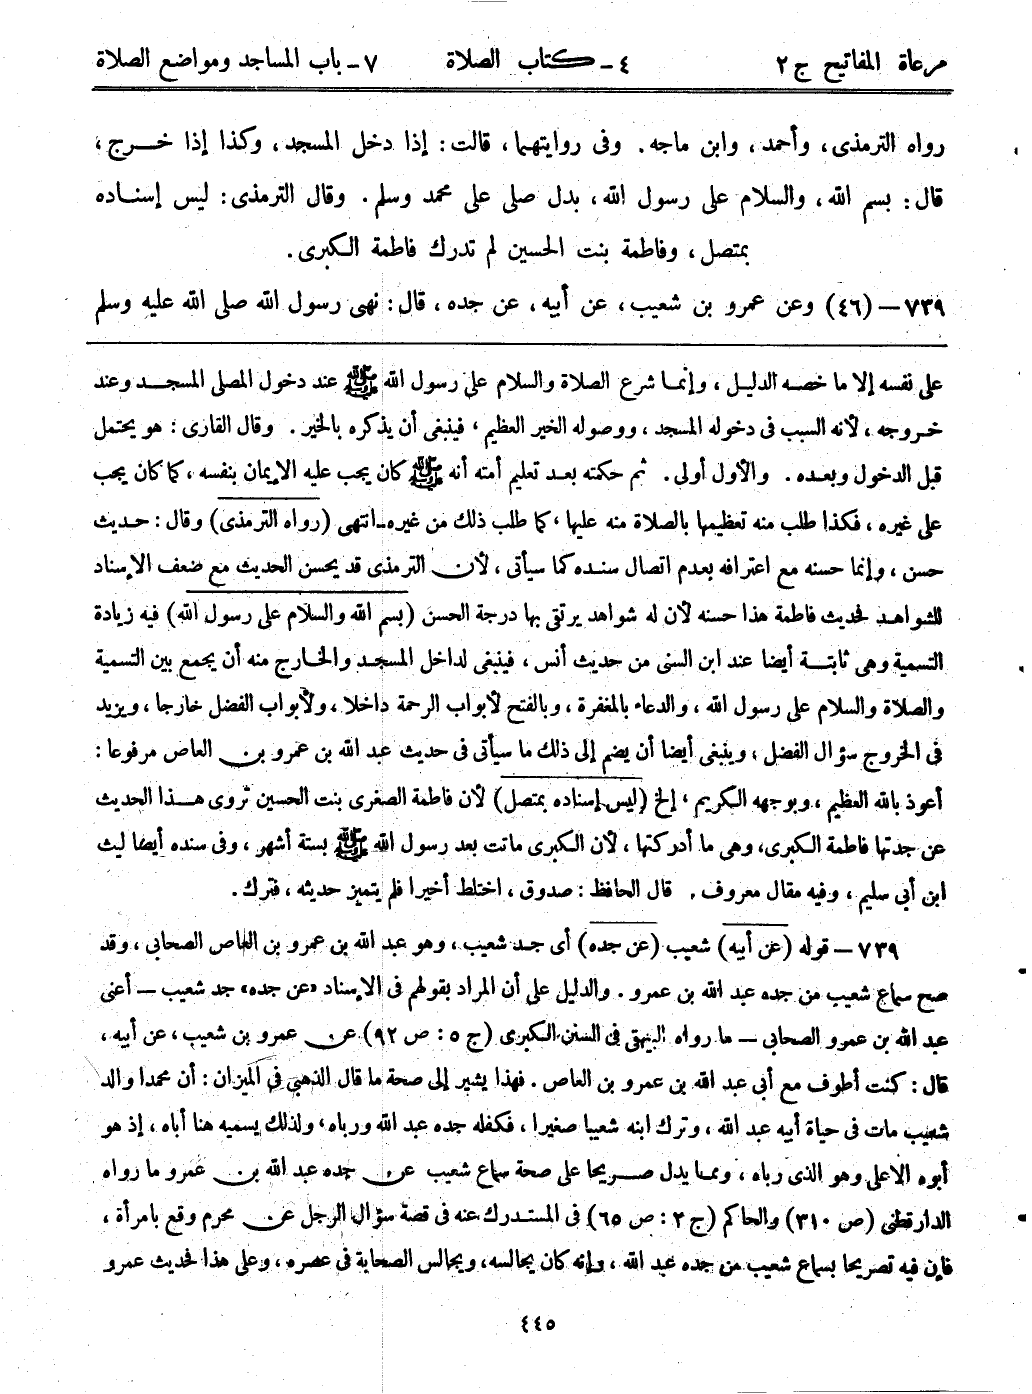 مرعاة المفاتيح ج ٢ ٤ - كتاب الصلاة ٧ - باب المساجد ومواضع الصلاة
رواه الترمذى، وأحمد، وابن ماجه. وفى روايتهما، قالت: إذا دخل المسجد، وكذا إذا خرج،
قال: بسم الله، والسلام على رسول الله، بدل صلى على محمد وسلم. وقال الترمذى: ليس إسناده
بمتصل، وفاطمة بنت الحسين لم تدرك فاطمة الكبرى.
٧٣٩ – (٤٦) وعن عمرو بن شعيب، عن أبيه، عن جده، قال: نهى رسول الله صلى الله عليه وسلم
على نفسه إلا ما خصه الدليل، وإنما شرع الصلاة والسلام على رسول الله ﷺ عند دخول المصلى المسجد وعند
خروجه، لأنه السبب فى دخوله المسجد، ووصوله الخير العظيم، فينبغى أن يذكره بالخير. وقال القارى: هو يحتمل
قبل الدخول وبعده. والأول أولى. ثم حكمته بعد تعليم أمته أنه ﷺ كان يجب عليه الإيمان بنفسه، كما كان يجب
على غيره، فكذا طلب منه تعظيمها بالصلاة منه عليها، كما طلب ذلك من غيره-انتهى (رواه الترمذى) وقال: حديث
حسن، وإنما حسنه مع اعترافه بعدم اتصال سنده كما سيأتى، لأن الترمذى قد يحسن الحديث مع ضعف الإسناد
للشواهد فحديث فاطمة هذا حسنه لأن له شواهد يرتقى بها درجة الحسن (بسم الله والسلام على رسول الله) فيه زيادة
التسمية وهى ثابتة أيضا عند ابن السنى من حديث أنس، فينبغى لداخل المسجد والخارج منه أن يجمع بين التسمية
والصلاة والسلام على رسول الله، والدعاء بالمغفرة، وبالفتح لأبواب الرحمة داخلا، ولأبواب الفضل خارجا، ويزيد
فى الخروج سؤال الفضل، وينبغى أيضا أن يضم إلى ذلك ما سيأتى فى حديث عبد الله بن عمرو بن العاص مرفوعا:
أعوذ بالله العظيم، وبوجهه الكريم، إلخ (ليس إسناده بمتصل) لأن فاطمة الصغرى بنت الحسين تروى هذا الحديث
عن جدتها فاطمة الكبرى، وهى ما أدركتها، لأن الكبرى ماتت بعد رسول الله ﷺ بستة أشهر، وفى سنده أيضا ليث
ابن أبى سليم، وفيه مقال معروف. قال الحافظ: صدوق، اختلط أخيرا فلم يتميز حديثه، فترك.
٧٣٩ – قوله (عن أبيه) شعيب (عن جده) أى جد شعيب، وهو عبد الله بن عمرو بن العاص الصحابى، وقد
صح سماع شعيب من جده عبد الله بن عمرو. والدليل على أن المراد بقولهم فى الإسناد «عن جده» جد شعيب – أعنى
عبد الله بن عمرو الصحابى – ما رواه البيهقى فى السنن الكبرى (ج ٥: ص ٩٢) عن عمرو بن شعيب، عن أبيه،
قال: كنت أطوف مع أبى عبد الله بن عمرو بن العاص. فهذا يشير إلى صحة ما قال الذهبى فى الميزان: أن محمدا والد
شعيب مات فى حياة أبيه عبد الله، وترك ابنه شعيبا صغيرا، فكفله جده عبد الله ورباه، ولذلك يسميه هنا أباه، إذ هو
أبوه الأعلى وهو الذى رباه، ومما يدل صريحا على صحة سماع شعيب عن جده عبد الله بن عمرو ما رواه
الدارقطنى (ص ٣١٠) والحاكم (ج ٢: ص ٦٥) فى المستدرك عنه فى قصة سؤال الرجل عن محرم وقع بامرأة،
فإن فيه تصريحا بسماع شعيب من جده عبد الله، وإنه كان يجالسه، ويجالس الصحابة فى عصره، وعلى هذا فحديث عمرو
٤٤٥